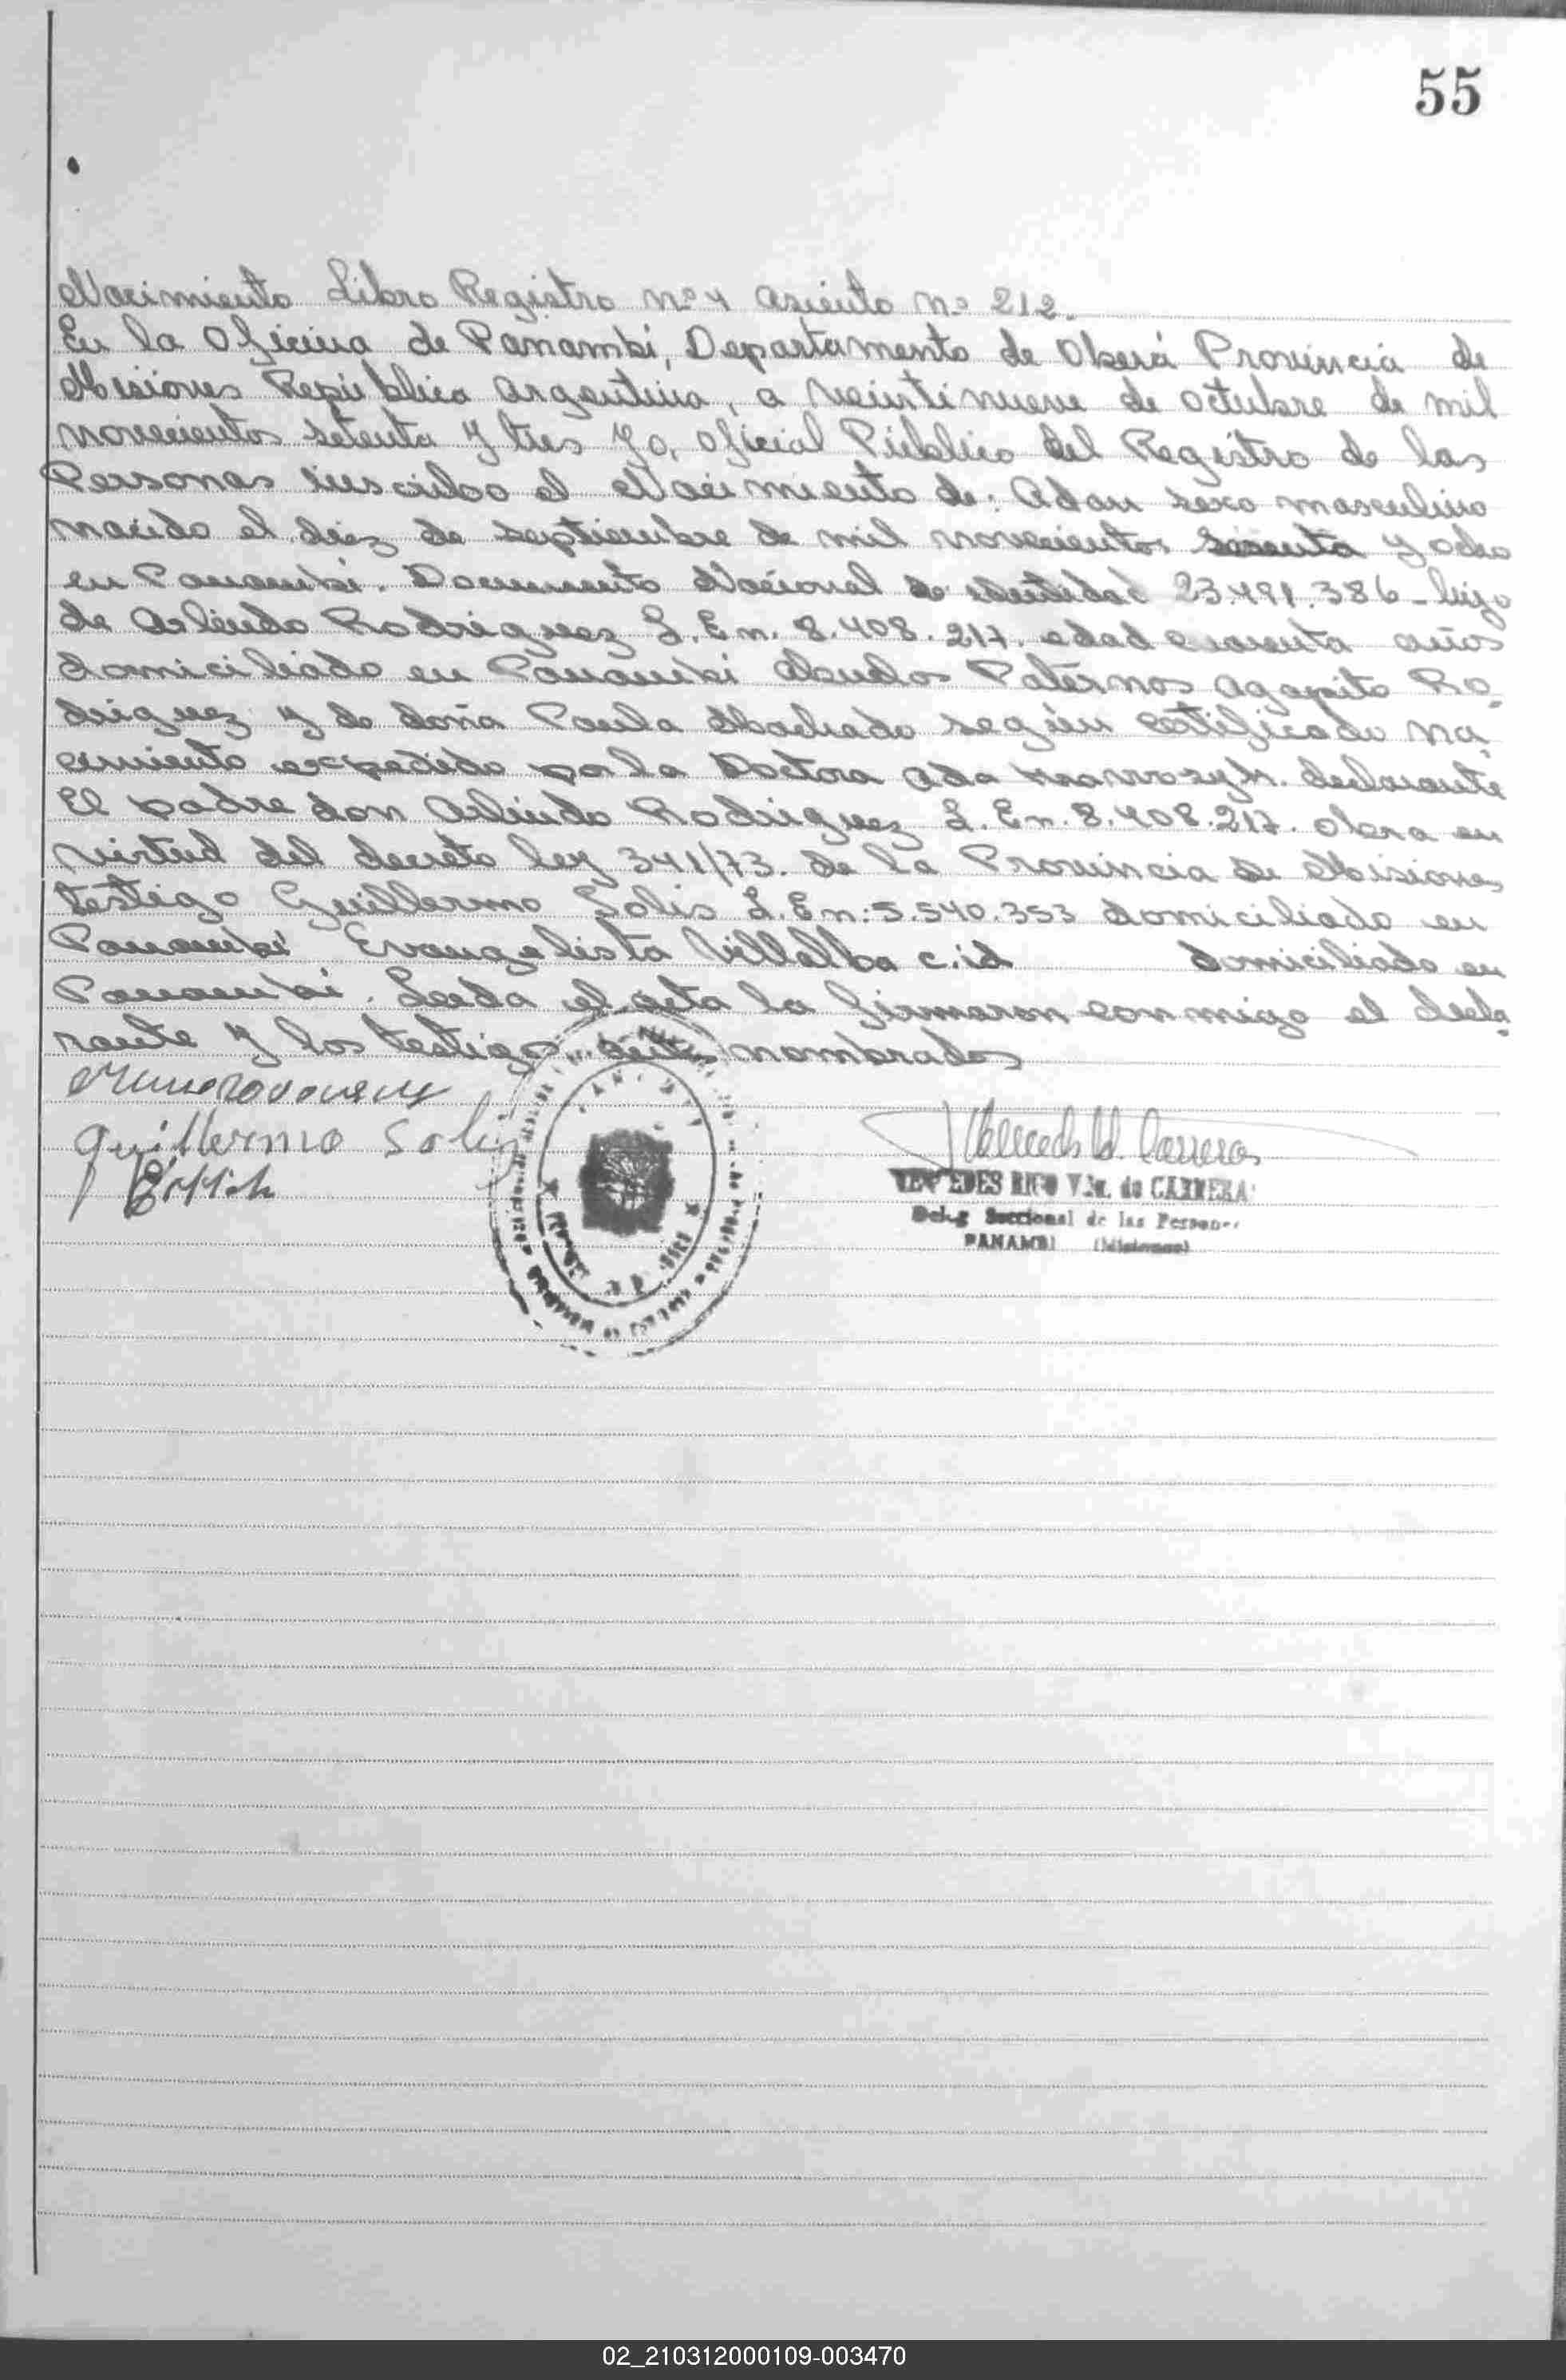 55
Nacimiento Libro Registro nº 4 asiento nº 212.
En la Oficina de Panambí, Departamento de Oberá Provincia de
Misiones República Argentina, a veintinueve de octubre de mil
novecientos setenta y tres Yo, oficial Público del Registro de las
Personas inscribo el Nacimiento de: Adan sexo masculino
nacido el diez de septiembre de mil novecientos sesenta y ocho
en Panambí. Documento Nacional de identidad 23.491.386 - hijo
de Arlindo Rodriguez L. E n. 8.408.217. edad cuarenta años
domiciliado en Panambi abuelos Paternos Agapito Ro-
driguez y de doña Paula Machado según certificado na-
cimiento expedido por la Doctora Ada declarante
El padre don Arlindo Rodriguez L. E n. 8.408.217. obra en
virtud del decreto ley 341/73. de la Provincia de Misiones
testigo Guillermo Solis L. E n: 5.540.353 domiciliado en
Panambí Evangelista Villalba c.id domiciliado en
Panambí. Leida el acta la firmaron conmigo el decla-
rante y los testigos antes nombrados
Guillermo Solis
MERCEDES RICO Vda. de CARRERA
Deleg Seccional de las Personas
PANAMBI (Misiones)
02_210312000109-003470